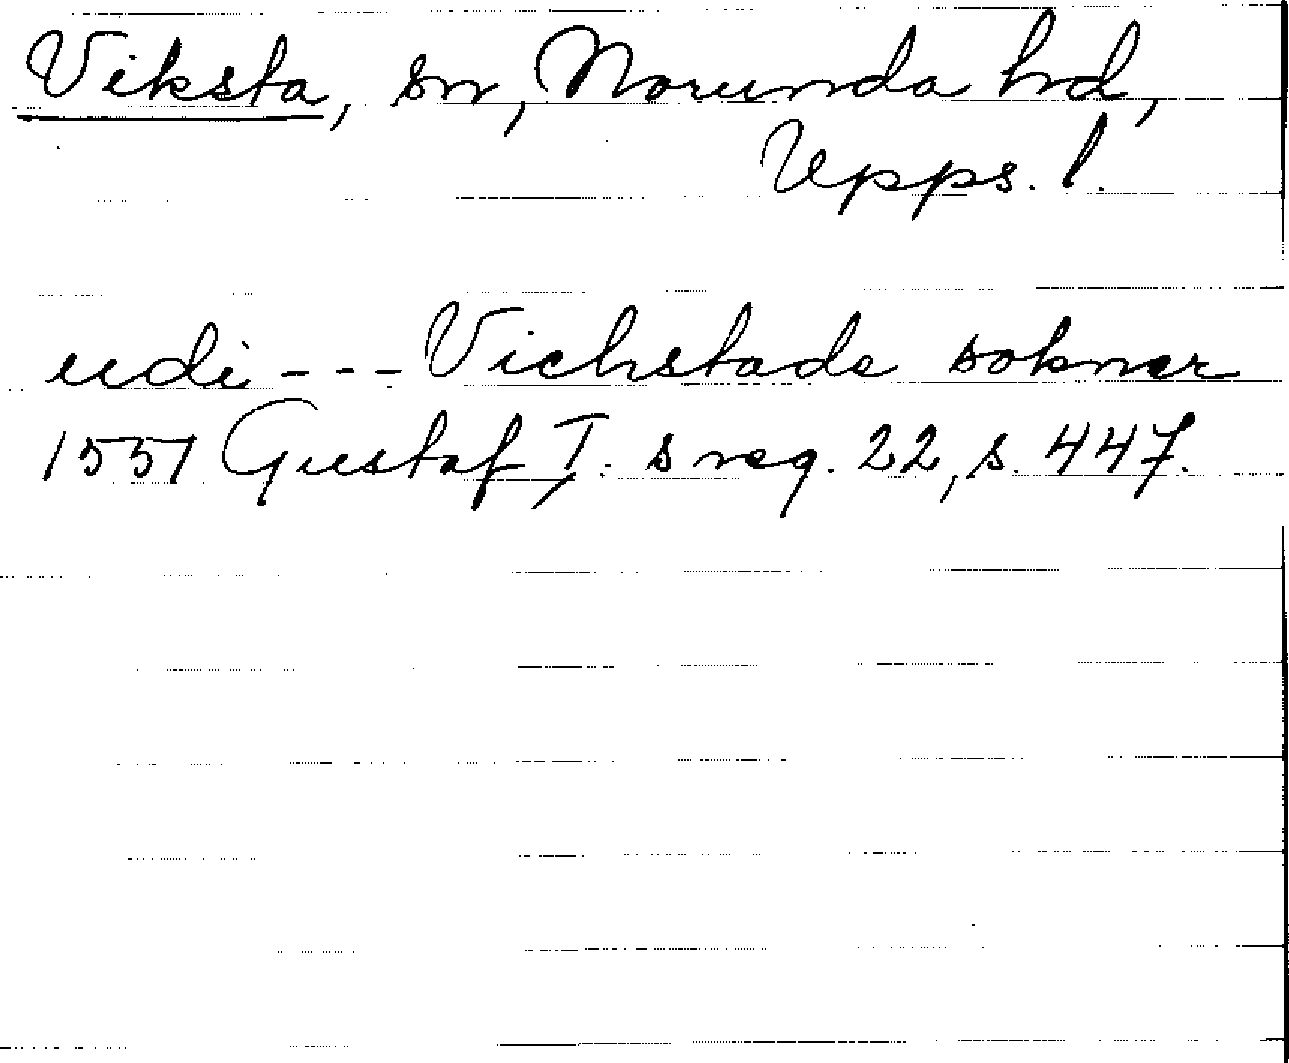 Viksta, sn, Norunda hd,
Upps. l.
udi --- Vichstade sokner
1551 Gustaf I. s reg. 22, s. 447.